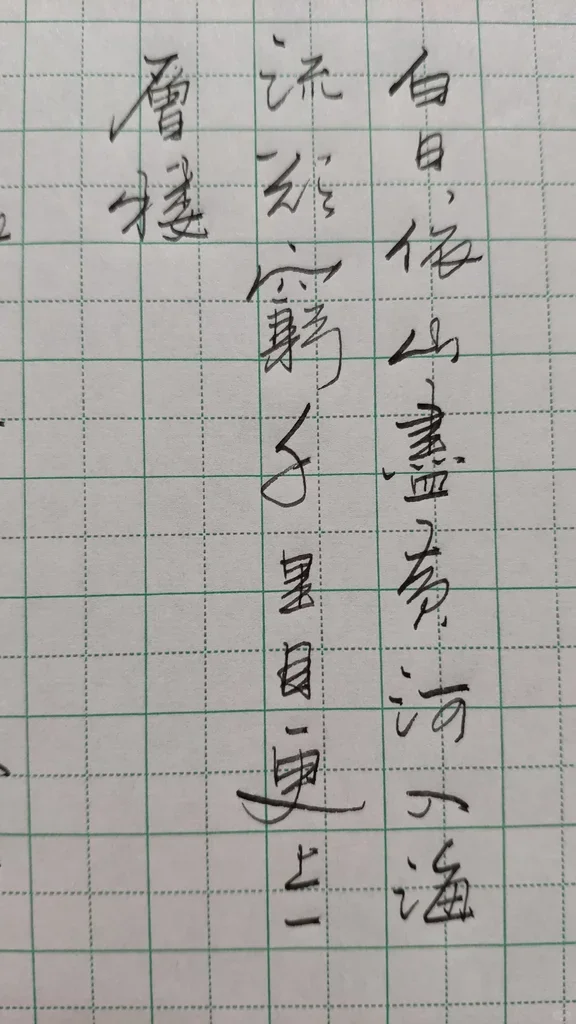 白日依山盡黄河入海
流欲窮千里目更上一
層楼